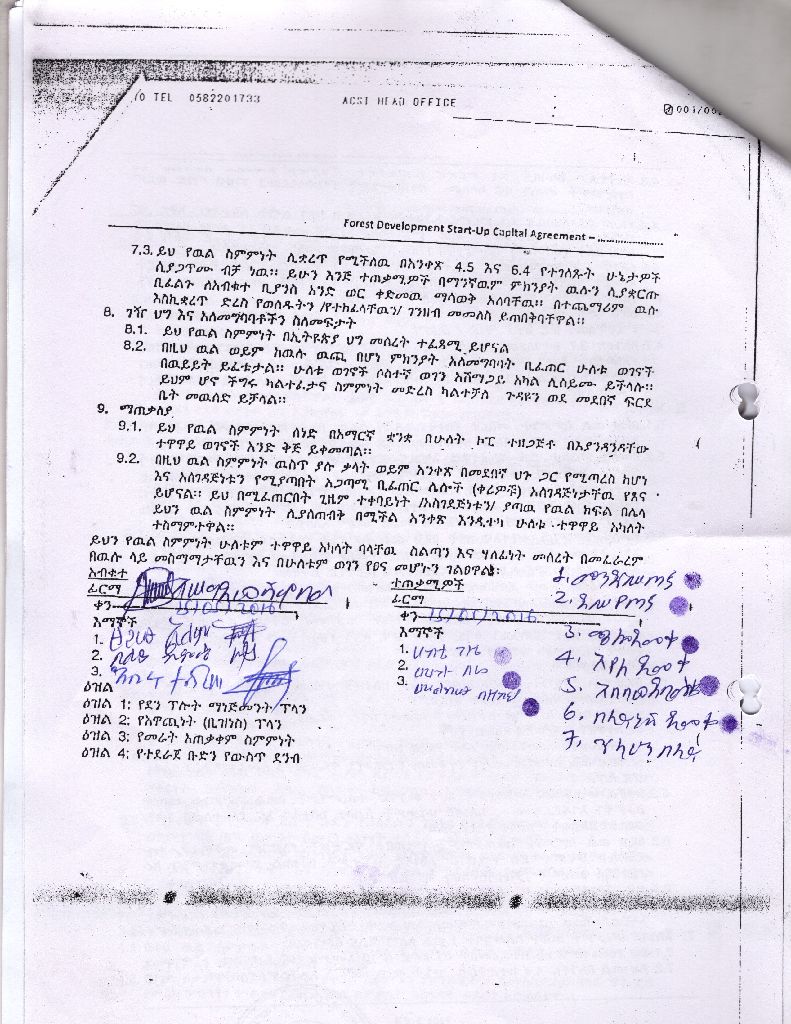 /O TEL 0582201733 ACSI HEAD OFFICE 001/00
Forest Development Start-Up Capital Agreement – ......................
7.3. ይህ የዉል ስምምነት ሊቋረጥ የሚችለዉ በአንቀጽ 4.5 እና 6.4 የተገለጹት ሁኔታዎች
ሲያጋጥሙ ብቻ ነዉ፡፡ ይሁን እንጅ ተጠቃሚዎች በማንኛዉም ምክንያት ዉሉን ሲያቋርጡ
ቢፈልጉ ለአብቁተ ቢያንስ አንድ ወር ቀድመዉ ማሳወቅ አለባቸዉ፡፡ በተጨማሪም ዉሉ
እስኪቋረጥ ድረስ የወሰዱትን /የተከፈላቸዉን/ ገንዘብ መመለስ ይጠበቅባቸዋል፡፡
8. ገዥ ህግ እና አለመግባባቶችን ስለመፍታት
8.1. ይህ የዉል ስምምነት በኢትዩጵያ ህግ መሰረት ተፈጻሚ ይሆናል
8.2. በዚህ ዉል ወይም ከዉሉ ዉጪ በሆነ ምክንያት አለመግባባት ቢፈጠር ሁለቱ ወገኖች
በዉይይት ይፈቱታል፡፡ ሁለቱ ወገኖች ሶስተኛ ወገን አሸማጋይ አካል ሊሰይሙ ይችላሉ፡፡
ይህም ሆኖ ችግሩ ካልተፈታና ስምምነት መድረስ ካልተቻለ ጉዳዩን ወደ መደበኛ ፍርድ
ቤት መዉሰድ ይቻላል፡፡
9. ማጠቃለያ
9.1. ይህ የዉል ስምምነት ሰነድ በአማርኛ ቋንቋ በሁለት ኮፒ ተዘጋጅቶ በእያንዳንዳቸው
ተዋዋይ ወገኖች አንድ ቅጅ ይቀመጣል፡፡
9.2. በዚህ ዉል ስምምነት ዉስጥ ያሉ ቃላት ወይም አንቀጽ በመደበኛ ህጉ ጋር የሚጣረስ ከሆነ
እና አስገዳጅነቱን የሚያጣበት አጋጣሚ ቢፈጠር ሌሎች (ቀሪዎቹ) አስገዳጅነታቸዉ የጸና
ይሆናል፡፡ ይህ በሚፈጠርበት ጊዜም ተቀባይነት /አስገደጅነቱን/ ያጣዉ የዉል ክፍል በሌላ
ይህን ዉል ስምምነት ሊያስጠብቅ በሚችል አንቀጽ እንዲተካ ሁለቱ ተዋዋይ አካላት
ተስማምተዋል፡፡
ይህን የዉል ስምምነት ሁለቱም ተዋዋይ አካላት ባላቸዉ ስልጣን እና ሃላፊነት መሰረት በመፈራረም
በዉሉ ላይ መስማማታቸዉን እና በሁለቱም ወገን የፀና መሆኑን ገልፀዋል፡
አብቁተ
ፊርማ
ቀን 15/05/2016
እማኞች
1.
2.
3.
ተጠቃሚዎች
ፊርማ
ቀን 15/05/2016
እማኞች
1.
2.
3.
1.
2.
3.
4.
5.
6.
7.
ዕዝል
ዕዝል 1: የደን ፕሎት ማነጅመንት ፕላን
ዕዝል 2: የአዋጪነት (ቢዝነስ) ፕላን
ዕዝል 3: የመሬት አጠቃቀም ስምምነት
ዕዝል 4: የተደራጀ ቡድን የውስጥ ደንብ